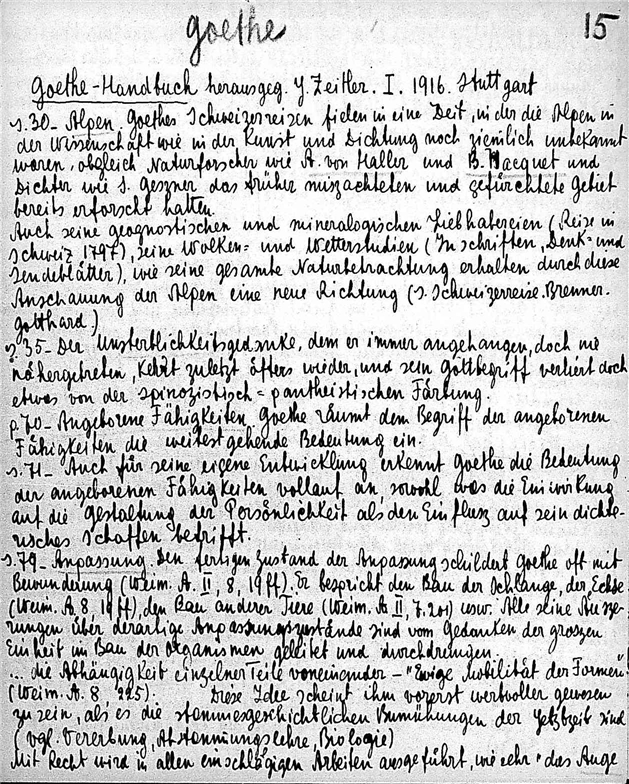 goethe
15
Goethe-Handbuch herausgeg. y. Zeitler. I. 1916. Stuttgart
s.30- Alpen Goethes Schweizerreisen fielen in eine Zeit, in der die Alpen in
der Wissenschaft wie in der Kunst und Dichtung noch ziemlich unbekannt
waren, obgleich Naturforscher wie A. von Haller und B. Hacquet und
Dichter wie S. Geszner das früher miszachteten und gefürchtete Gebiet
bereits erforscht hatten.
Auch seine geognostischen und mineralogischen Liebhabereien (Reise in
Schweiz 1797), seine Wolken= und Wetterstudien (In schriften, Denk= und
Sendeblätter), wie seine gesamte Naturbetrachtung erhalten durch diese
Anschauung der Alpen eine neue Richtung (s. Schweizerreise. Brenner.
Gotthard.)
s.35- Der Unsterblichkeitsgedanke, dem er immer angehangen, doch nie
nähergetreten, kehrt zuletzt öfters wieder, und sein Gottbegriff verliert doch
etwas von der spinozistisch=pantheistischen Färbung.
p.70- Angeborene Fähigkeiten. Goethe räumt dem Begriff der angeborenen
Fähigkeiten die weitestgehende Bedeutung ein.
s.71- Auch für seine eigene Entwicklung erkennt Goethe die Bedeutung
der angeborenen Fähigkeiten vollauf an, sowohl was die Einwirkung
auf die Gestaltung der Persönlichkeit als den Einflusz auf sein dichte-
risches Schaffen betrifft.
s.79- Anpassung. Den fertigen Zustand der Anpassung schildert Goethe oft mit
Bewunderung (Weim. A. II, 8, 19ff). Er bespricht den Bau der Schlange, der Echse
(Weim. A. 8 19ff), den Bau anderer Tiere (Weim. A II, 7.201) usw. Alle seine Äusze-
rungen über derartige Anpassungszustände sind vom Gedanken der groszen
Einheit im Bau der Organismen geleitet und durchdrungen.
... die Abhängigkeit einzelner Teile voneinander - "Ewige Mobilität der Formen"
(Weim. A. 8 225). Diese Idee scheint ihm vorerst wertvoller gewesen
zu sein, als es die stammesgeschichtlichen Bemühungen der Jetztzeit sind
(vgl. Vererbung, Abstammungslehre, Biologie)
Mit Recht wird in allen einschlägigen Arbeiten ausgeführt, wie sehr "das Auge